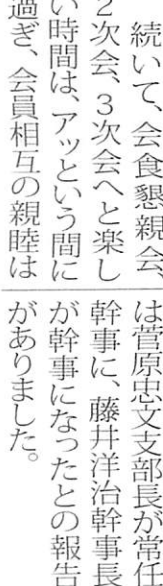 続いて、会食懇親会、
2次会、3次会へと楽し
い時間は、アッという間に
過ぎ、会員相互の親睦は
は菅原忠文支部長が常任
幹事に、藤井洋治幹事長
が幹事になったとの報告
がありました。